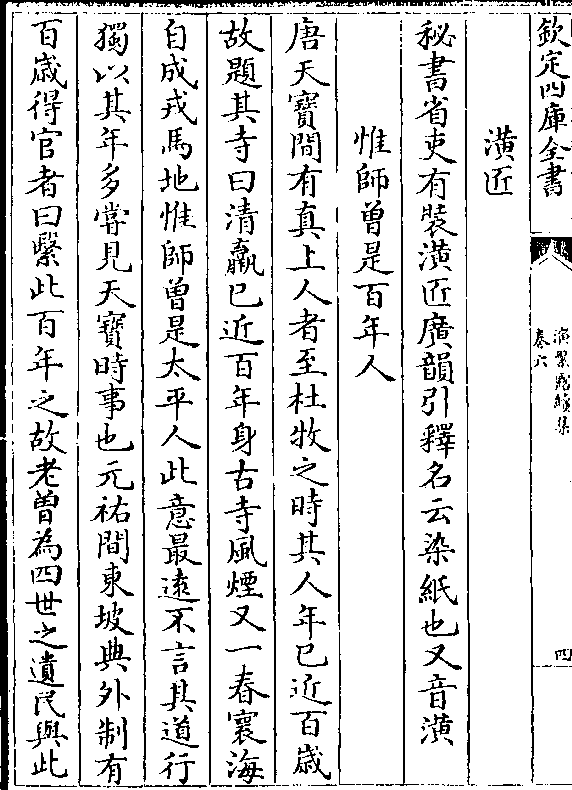 欽定四庫全書
演繁露續集
卷六
四
潢匠
秘書省吏有裝潢匠廣韻引釋名云染紙也又音潢
惟師曾是百年人
唐天寶間有真上人者至杜牧之時其人年已近百歳
故題其寺曰清羸已近百年身古寺風煙又一春寰海
自成戎馬地惟師曾是太平人此意最遠不言其道行
獨以其年多嘗見天寶時事也元祐間東坡典外制有
百歳得官者曰繄此百年之故老曽為四世之遺民與此